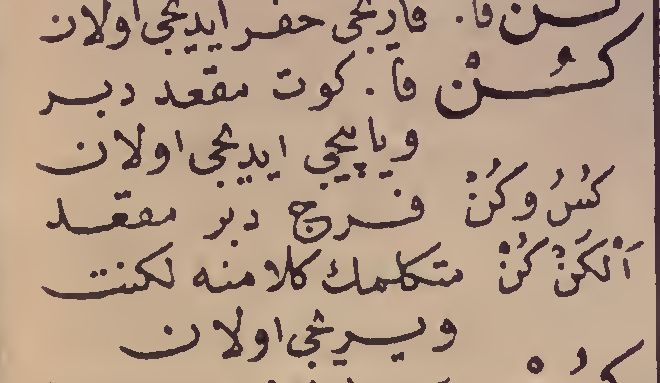 كَن فا. قازيجى حفر ايديجى اولان
كُنْ فا. كوت مقعد دبر
وياپيجى ايديجى اولان
كُسْ وكُنْ فرج دبر مقعد
اَلْكَنْ كُنْ متكلمك كلامنه لكنت
ويريجى اولان